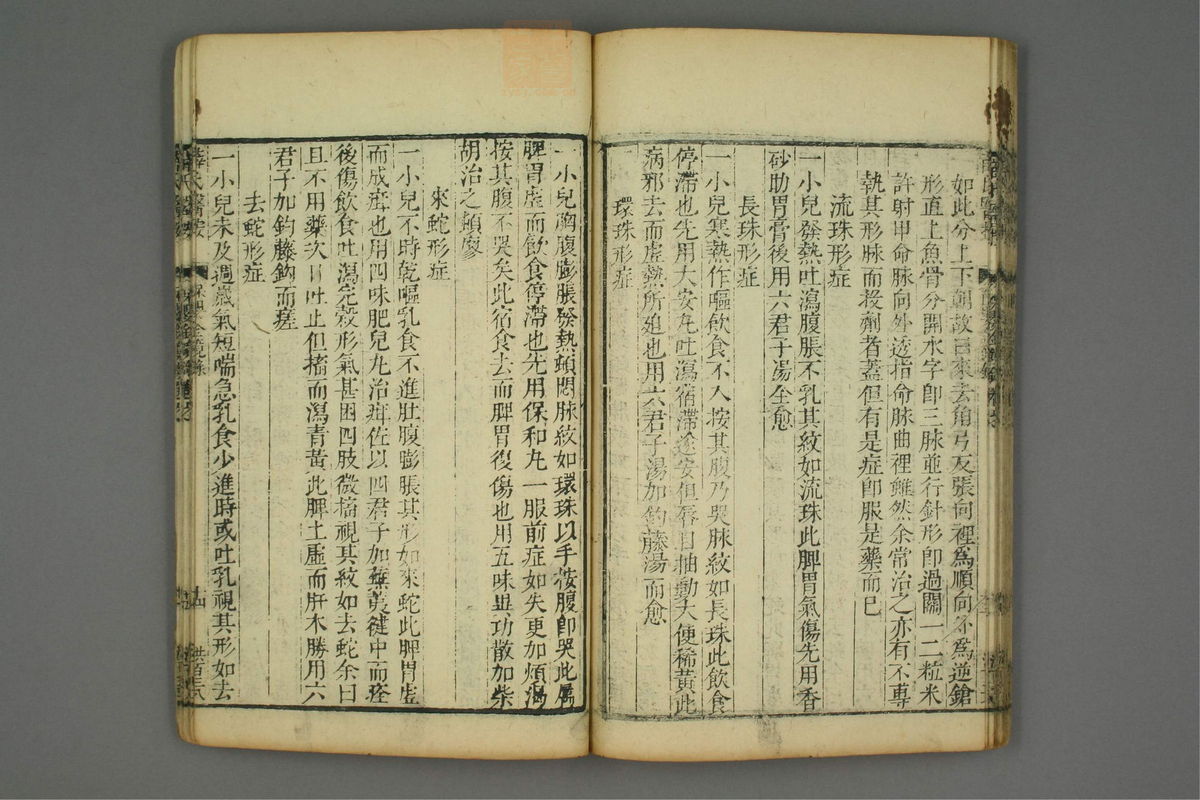 如此分上下朝故曰來去角弓反張向裡為順向外為逆鎗
形直上魚骨分開水字即三脉並行針形即過關一二粒米
許射甲命脉向外透指命脉曲裡雖然余常治之亦有不專
執其形脉而投劑者蓋但有是症即服是藥而已
流珠形症
一小兒發熱吐瀉腹脹不乳其紋如流珠此脾胃氣傷先用香
砂助胃膏後用六君子湯全愈
長珠形症
一小兒寒熱作嘔飲食不入按其腹乃哭脉紋如長珠此飲食
停滯也先用大安丸吐瀉宿滯遂安但唇目抽動大便稀黃此
病邪去而虛熱所
也用六君子湯加釣藤湯而愈
環珠形症
一小兒胸腹膨脹發熱頓悶脉紋如環珠以手按腹即哭此屬
脾胃虛而飲食停滯也先用保和丸一服前症如失更加煩渴
按其腹不哭矣此宿食去而脾胃復傷也用五味異功散加柴
胡治之頓廖
來蛇形症
一小兒不時乾嘔乳食不進肚腹膨脹其形如來蛇此脾胃虛
而成疳也用四味肥兒丸治疳佐以四君子加蕪荑健中而痊
後傷飲食吐瀉完穀形氣甚困四肢微搐視其紋如去蛇余曰
且不用藥次日吐止但搐而瀉青黃此脾土虛而肝木勝用六
君子加釣藤鈎而瘥
去蛇形症
一小兒未及週歲氣短喘急乳食少進時或吐乳視其形如去
薛氏醫按
保嬰金鏡錄
十四